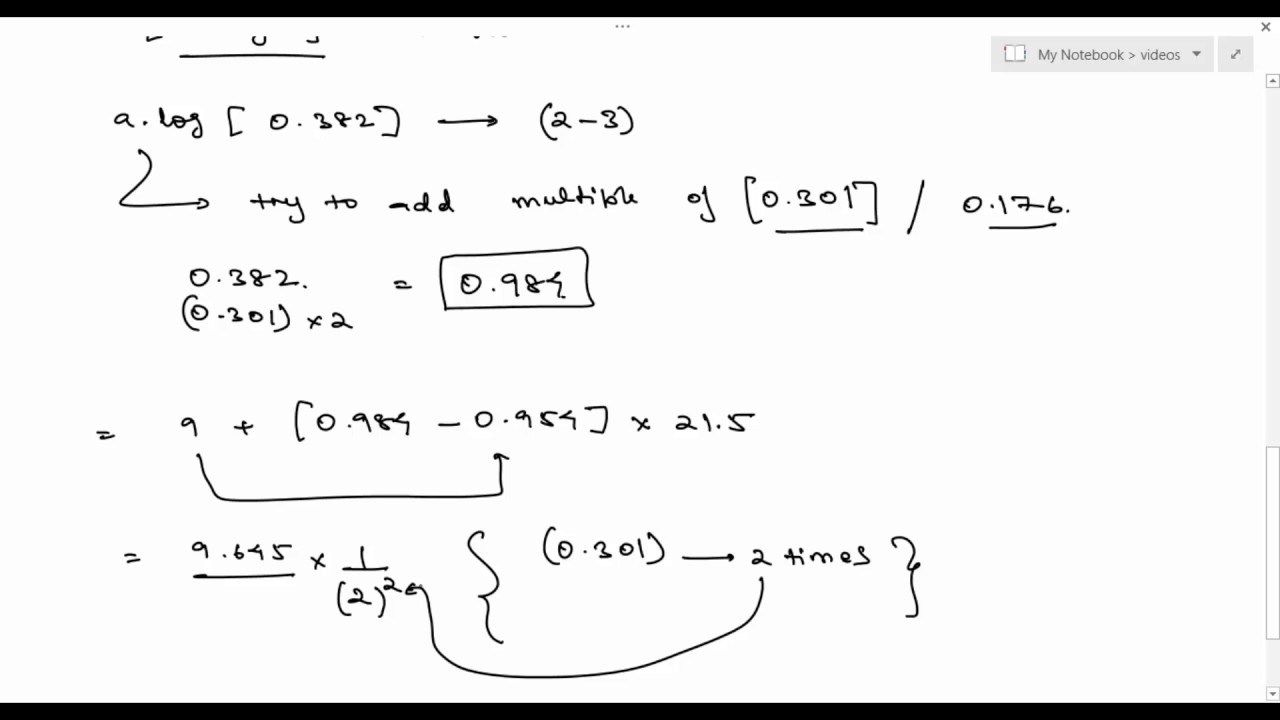 My Notebook > videos
a.log [ 0.382] → (2-3)
try to add multible of [0.301] / 0.176.
0.382. = 0.984
(0.301) × 2
= 9 + [0.984 - 0.954] × 21.5
= 9.645 × 1/(2)² { (0.301) → 2 times }